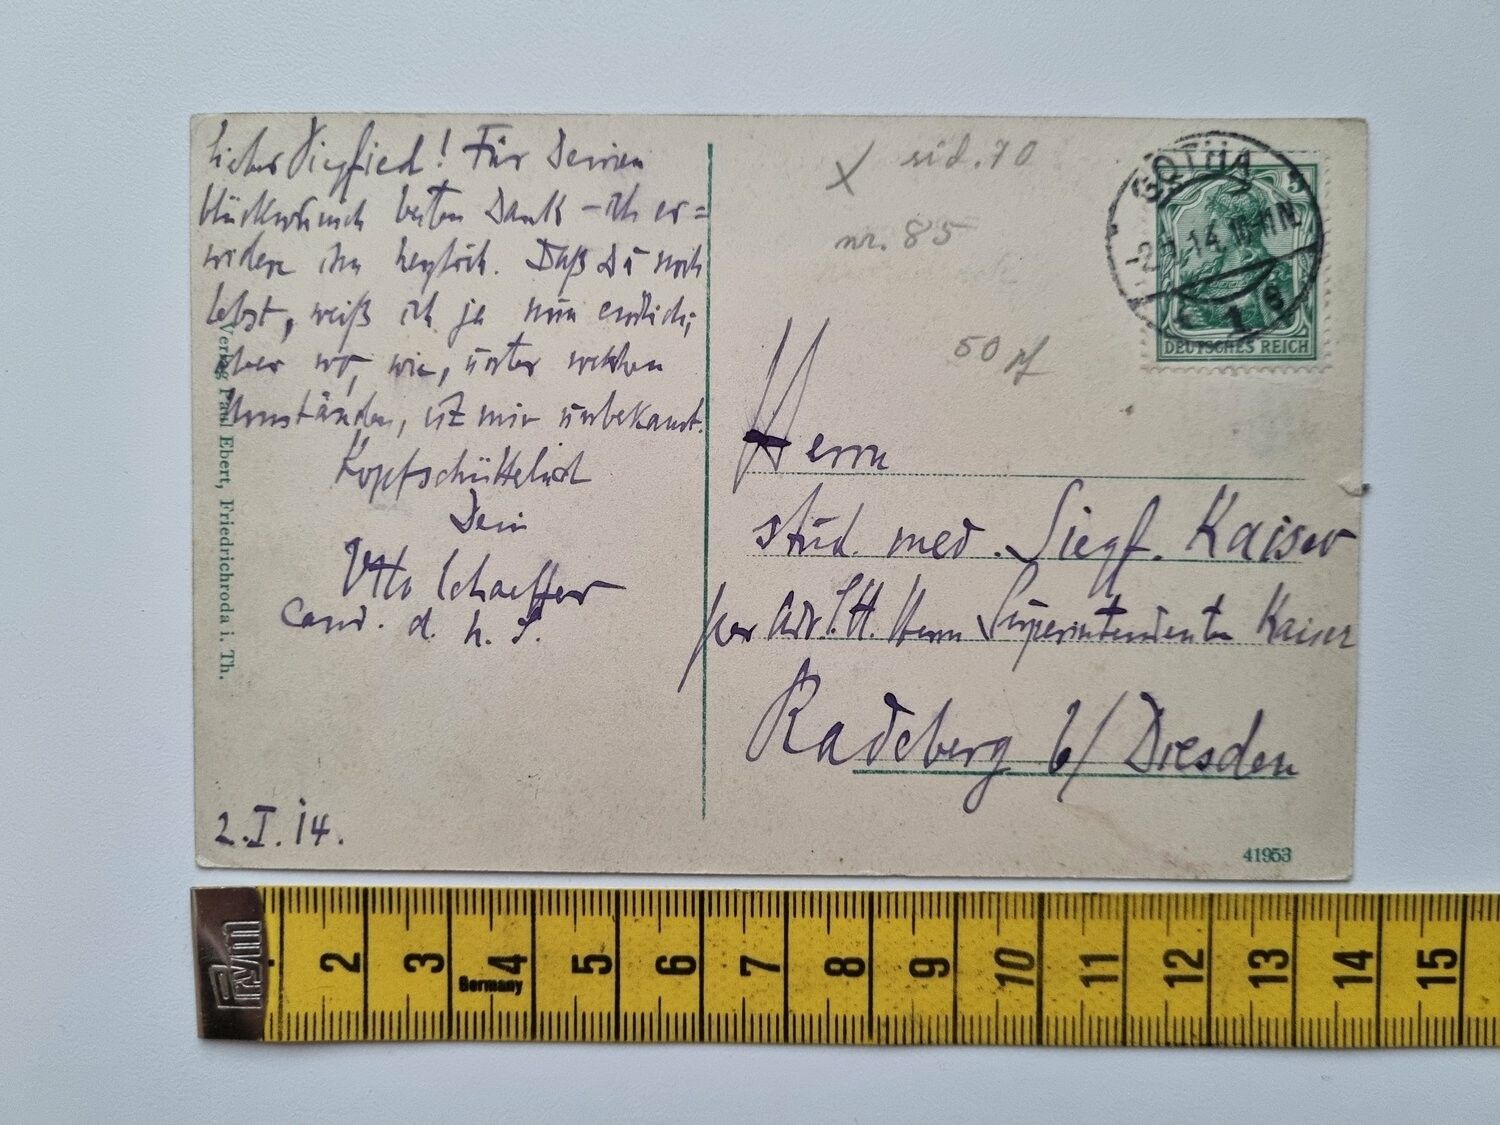 Lieber Siegfried! Für Deinen
Glückwunsch besten Dank – ich er=
widere ihn herzlich. Daß Du noch
lebst, weiß ich ja nun endlich;
aber wo, wie, unter welchen
Umständen, ist mir unbekannt.
Kopfschüttelnd
Dein
Otto Schaeffer
Cand. d. h. S.
2.I.14.
Verlag Paul Ebert, Friedrichroda i. Th.
X
nr. 85
50 pf
GOTHA
14
DEUTSCHES REICH
Herrn
stud. med. Siegf. Kaiser
per Adr. S.H. Herrn Superintendenten Kaiser
Radeberg b/ Dresden
41953
Prym
2 3 4 5 6 7 8 9 10 11 12 13 14 15
Germany